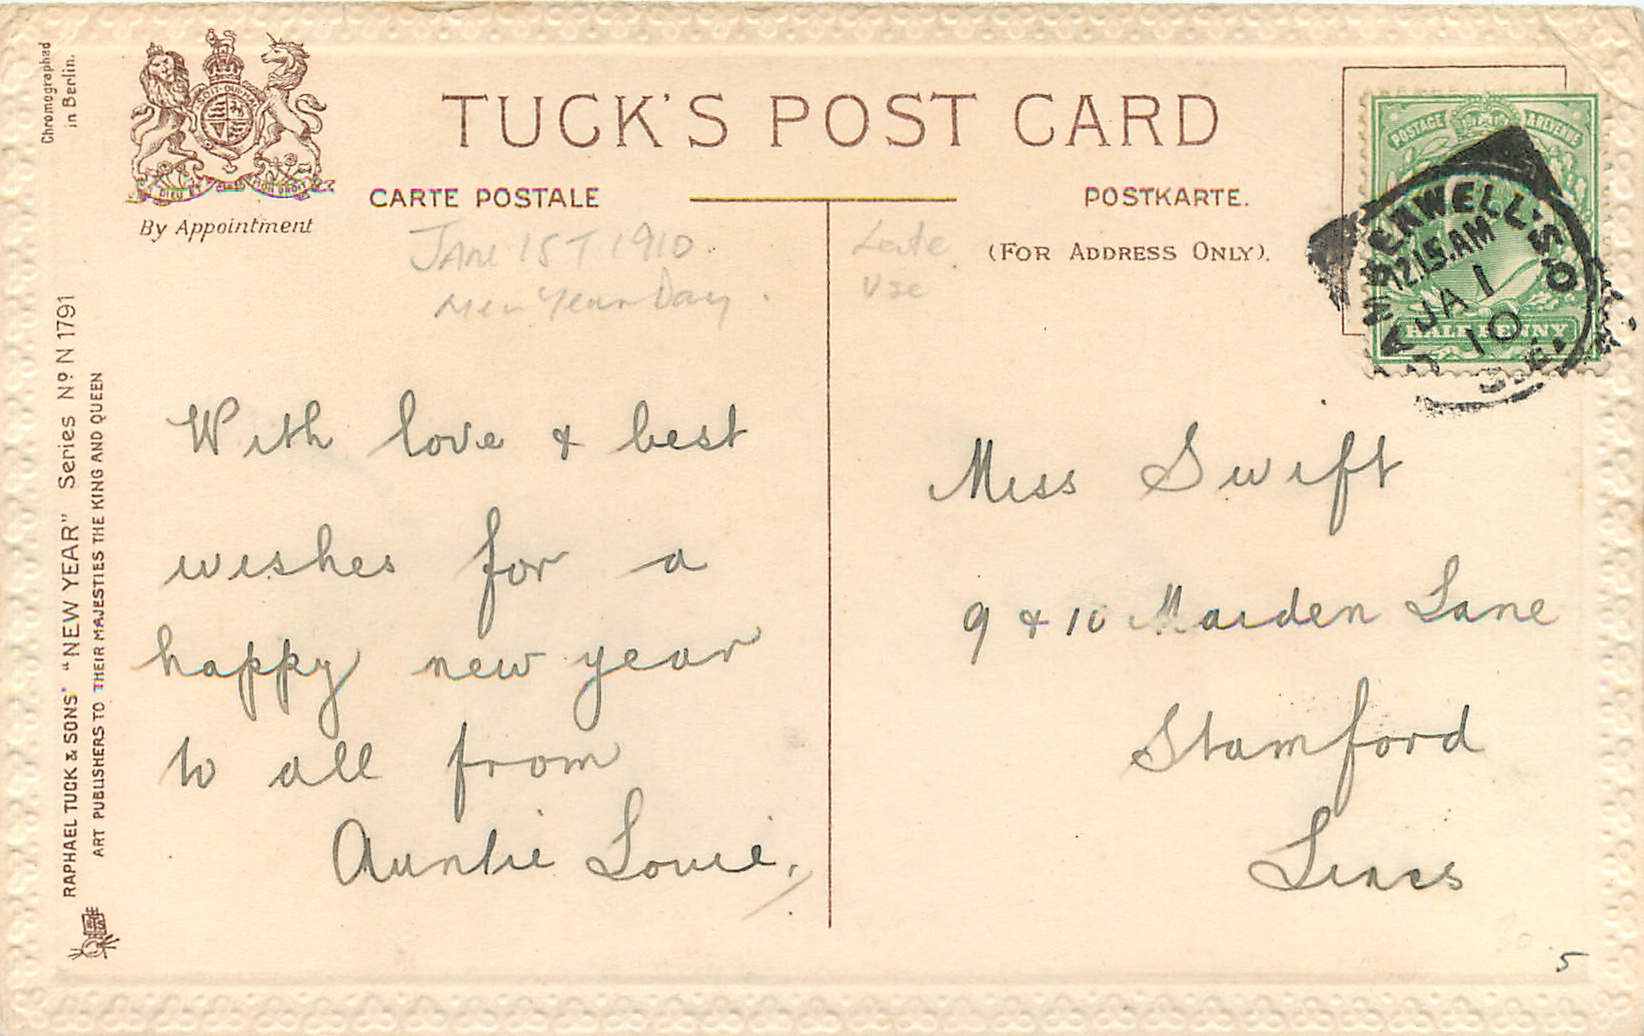 Chromographed
in Berlin.
DIEU ET MON DROIT
By Appointment
TUCK'S POST CARD
CARTE POSTALE
POSTKARTE.
(FOR ADDRESS ONLY).
JAN 1ST 1910.
New Year Day.
Late
Use
POSTAGE & REVENUE
HALFPENNY
CAMBERWELL'S.O
12.15.AM
JA 1
10
S.E.
RAPHAEL TUCK & SONS' "NEW YEAR" Series No N 1791
ART PUBLISHERS TO THEIR MAJESTIES THE KING AND QUEEN
With love & best
wishes for a
happy new year
to all from
Auntie Louie.
Miss Swift
9 & 10 Maiden Lane
Stamford
Lincs
5